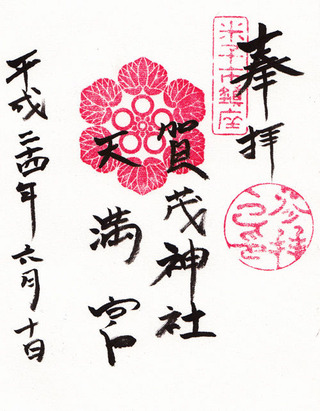 奉拝
米子市鎮座
賀茂神社
天満宮
平成二十四年六月十日